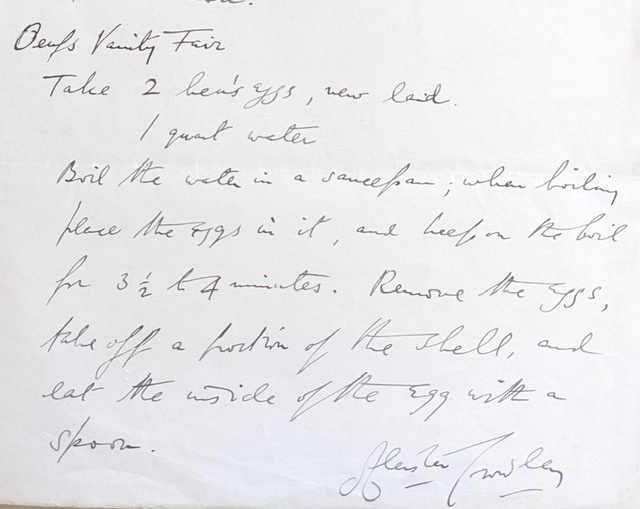 Oeufs Vanity Fair
Take 2 hen's eggs, new laid.
1 quart water
Boil the water in a saucepan; when boiling
place the eggs in it, and keep on the boil
for 3½ to 4 minutes. Remove the eggs,
take off a portion of the shell, and
eat the inside of the egg with a
spoon.
Aleister Crowley